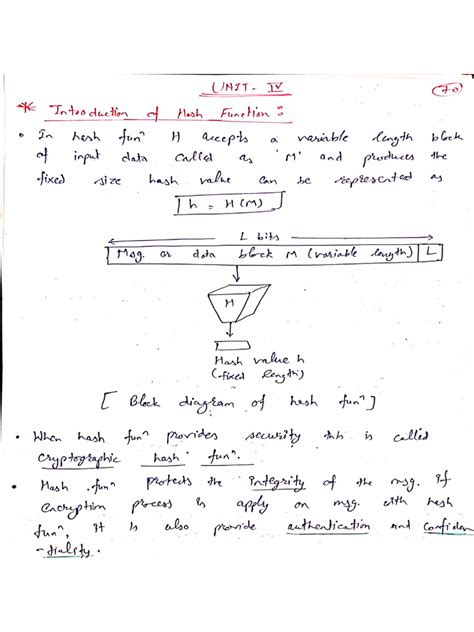 UNIT - IV
70
* Introduction of Hash Function :
• In hash funⁿ H accepts a variable length block
of input data called as 'M' and produces the
fixed size hash value can be represented as
h = H(M)
L bits
Msg. or data block M (variable length) L
H
Hash value h
(fixed length)
[ Block diagram of hash funⁿ ]
• When hash funⁿ provides security this is called
cryptographic hash funⁿ.
• Hash funⁿ protects the integrity of the msg. If
encryption process is apply on msg. with hash
funⁿ, it is also provide authentication and confiden
-tiality.